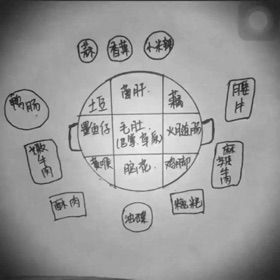 蒜 香菜 小米辣
鸭肠
腰片
土豆
菌肝
藕
墨鱼仔
毛肚
火腿肠
黄喉
脑花
鸡脚
嫩牛肉
麻辣牛肉
酥肉
油碟
糍粑